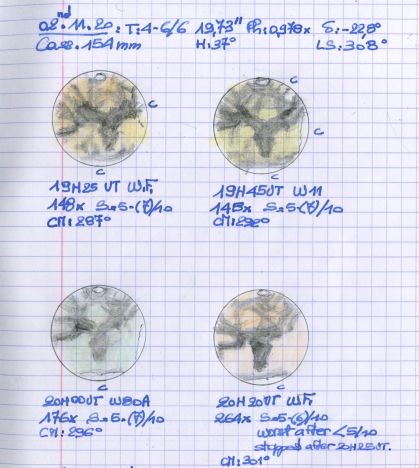 02.nd 11.20: T:4-6/6 19,73" Ph:0,978x δ:-22,8°
Cass. 154mm H:37° LS:308°
C
C
C C
19H25 UT W.F. 19H45UT W11
148x S=5-(7)/10 148x S=5-(7)/10
CM:287° CM:292°
C C
20H00UT W80A 20H20UT WF.
176x S=5-(7)/10 264x S=5-(6)/10
CM:296° worst after <5/10
stopped after 20H25UT.
CM:301°